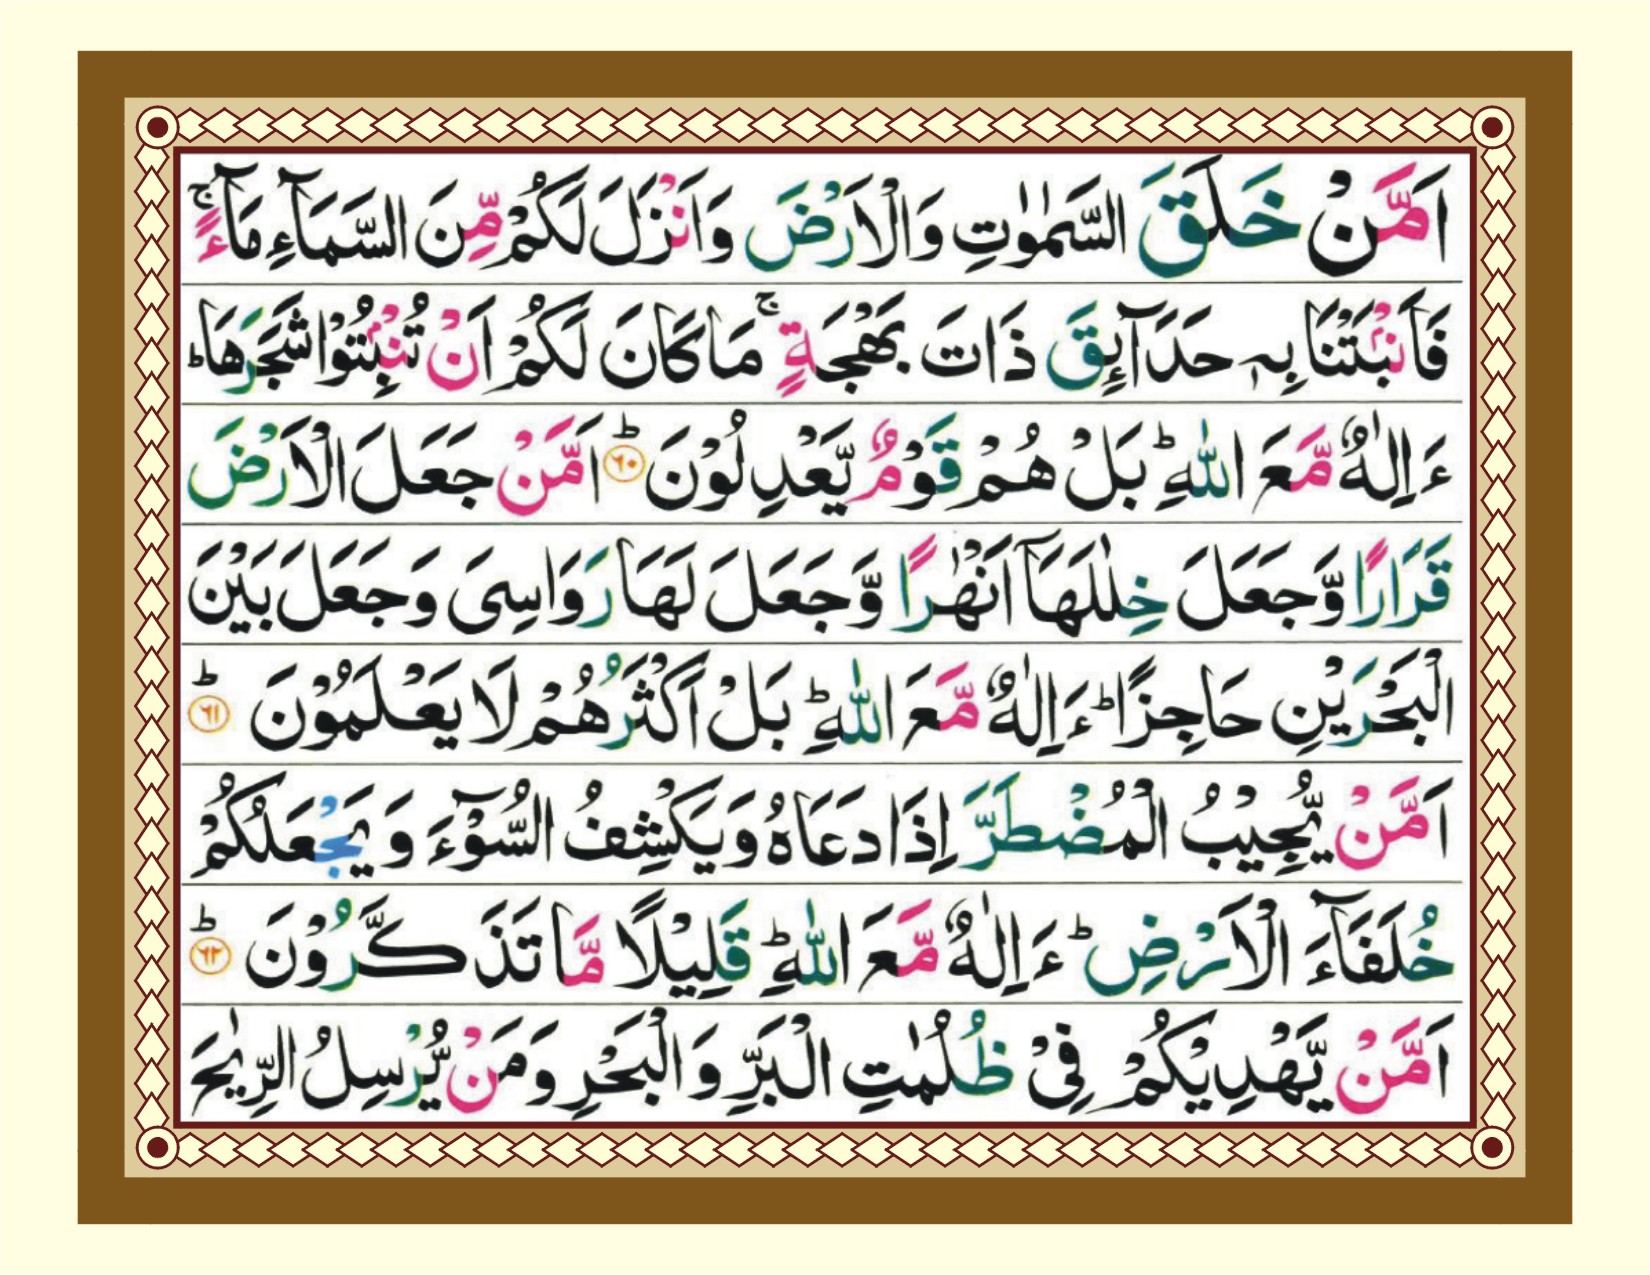 اَمَّنْ خَلَقَ السَّمٰوٰتِ وَالْاَرْضَ وَاَنْزَلَ لَكُمْ مِّنَ السَّمَآءِ مَآءً ۚ
فَاَنْۢبَتْنَا بِهٖ حَدَآئِقَ ذَاتَ بَهْجَةٍ ۚ مَا كَانَ لَكُمْ اَنْ تُنْۢبِتُوْا شَجَرَهَا ؕ
ءَ اِلٰهٌ مَّعَ اللّٰهِ ؕ بَلْ هُمْ قَوْمٌ يَّعْدِلُوْنَ ؕ ۶۰ اَمَّنْ جَعَلَ الْاَرْضَ
قَرَارًا وَّجَعَلَ خِلٰلَهَآ اَنْهٰرًا وَّجَعَلَ لَهَا رَوَاسِىَ وَجَعَلَ بَيْنَ
الْبَحْرَيْنِ حَاجِزًا ؕ ءَ اِلٰهٌ مَّعَ اللّٰهِ ؕ بَلْ اَكْثَرُهُمْ لَا يَعْلَمُوْنَ ؕ ۶۱
اَمَّنْ يُّجِيْبُ الْمُضْطَرَّ اِذَا دَعَاهُ وَيَكْشِفُ السُّوْٓءَ وَيَجْعَلُكُمْ
خُلَفَآءَ الْاَرْضِ ؕ ءَ اِلٰهٌ مَّعَ اللّٰهِ ؕ قَلِيْلًا مَّا تَذَكَّرُوْنَ ؕ ۶۲
اَمَّنْ يَّهْدِيْكُمْ فِىْ ظُلُمٰتِ الْبَرِّ وَالْبَحْرِ وَمَنْ يُّرْسِلُ الرِّيٰحَ